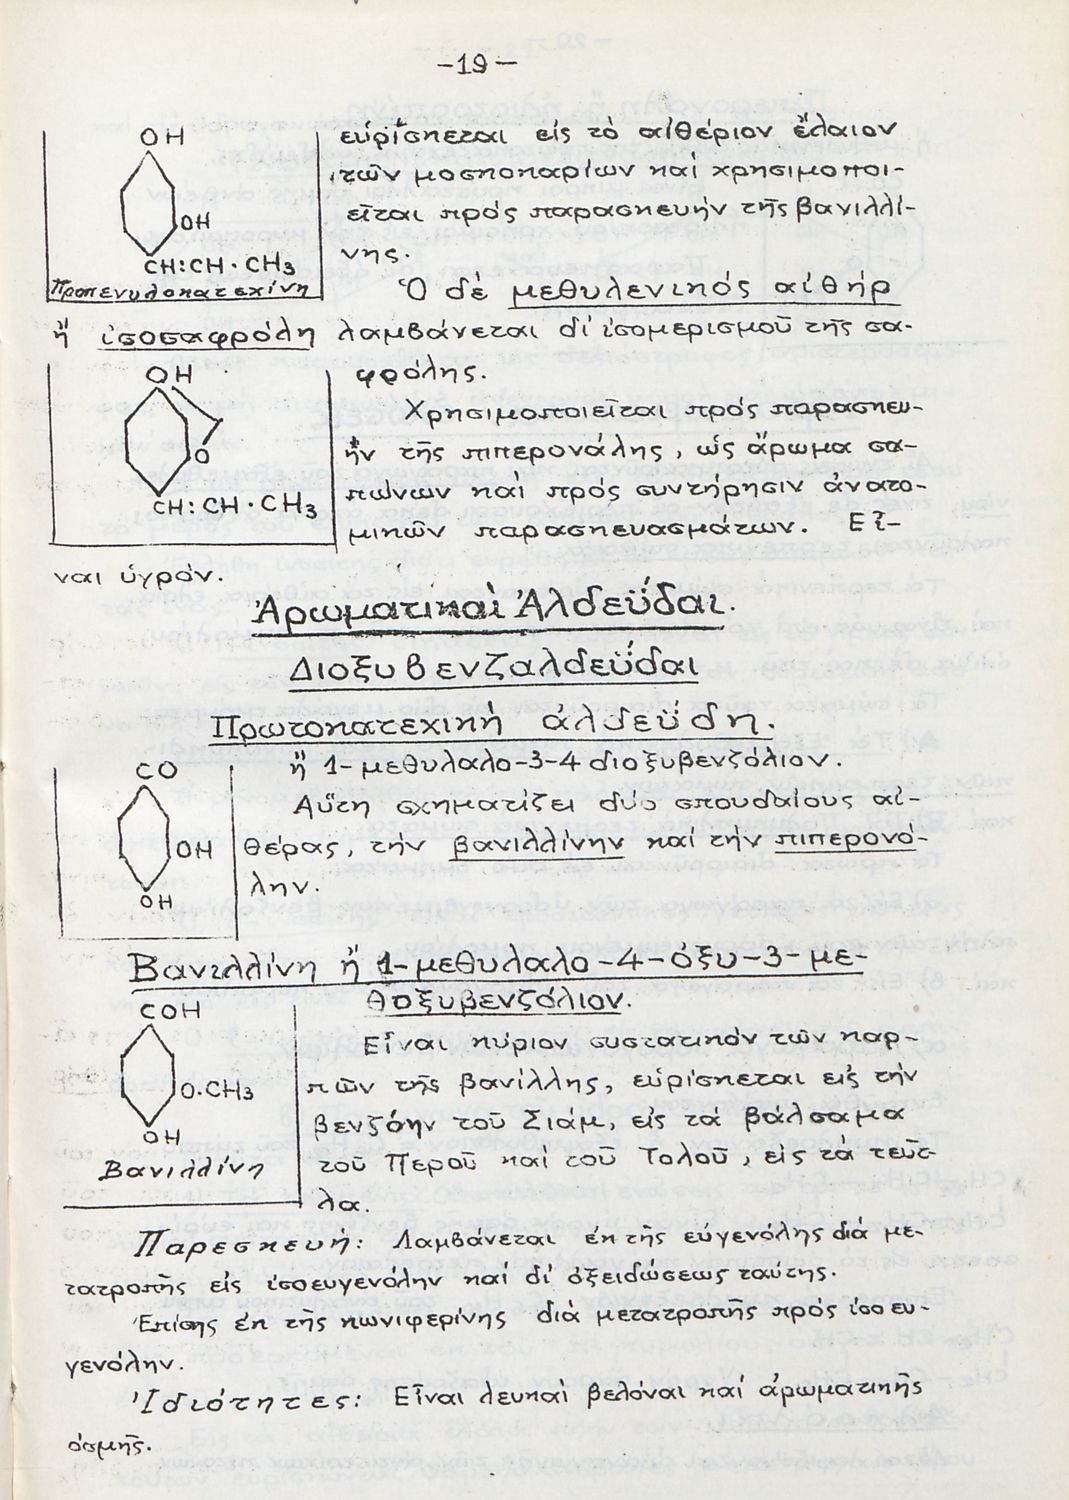 -19-
OH
OH
CH:CH·CH3
Προπενυλοκατεχίνη
εὑρίσκεται εἰς τό αἰθέριον ἔλαιον
τῶν μοσχοκαρίων καί χρησιμοποι-
εῖται πρός παρασκευήν τῆς βανιλλί-
νης.
Ὁ δέ μεθυλενικός αἰθήρ
ἤ ἰσοσαφρόλη λαμβάνεται δι' ἰσομερισμοῦ τῆς σα-
φρόλης.
OH
O
CH:CH·CH3
Χρησιμοποιεῖται πρός παρασκευ-
ήν τῆς πιπερονάλης, ὡς ἄρωμα σα-
πώνων καί πρός συντήρησιν ἀνατο-
μικῶν παρασκευασμάτων. Εἶ-
ναι ὑγρόν.
Ἀρωματικαί Ἀλδεΰδαι.
Διοξυβενζαλδεΰδαι
Πρωτοκατεχική ἀλδεΰδη.
CO
OH
OH
ἤ 1-μεθυλαλο-3-4 διοξυβενζόλιον.
Αὕτη σχηματίζει δύο σπουδαίους αἰ-
θέρας, τήν βανιλλίνην καί τήν πιπερονό-
λην.
Βανιλλίνη ἤ 1-μεθυλαλο-4-ὀξυ-3-με-
θοξυβενζόλιον.
COH
O.CH3
OH
Βανιλλίνη
Εἶναι κύριον συστατικόν τῶν καρ-
πῶν τῆς βανίλλης, εὑρίσκεται εἰς τήν
βενζόην τοῦ Σιάμ, εἰς τά βάλσαμα
τοῦ Περοῦ καί τοῦ Τολοῦ, εἰς τά τεῦτ-
λα.
Παρεσκευή: Λαμβάνεται ἐκ τῆς εὐγενόλης διά με-
τατροπῆς εἰς ἰσοευγενόλην καί δι' ὀξειδώσεως ταύτης.
Ἐπίσης ἐκ τῆς κωνιφερίνης διά μετατροπῆς πρός ἰσοευ-
γενόλην.
Ἰδιότητες: Εἶναι λευκαί βελόναι καί ἀρωματικῆς
ὀσμῆς.